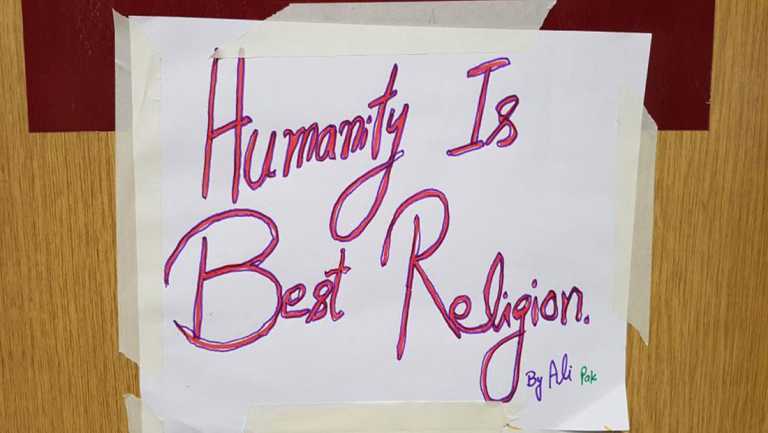 Humanity Is
Best Religion.
By Ali Pak